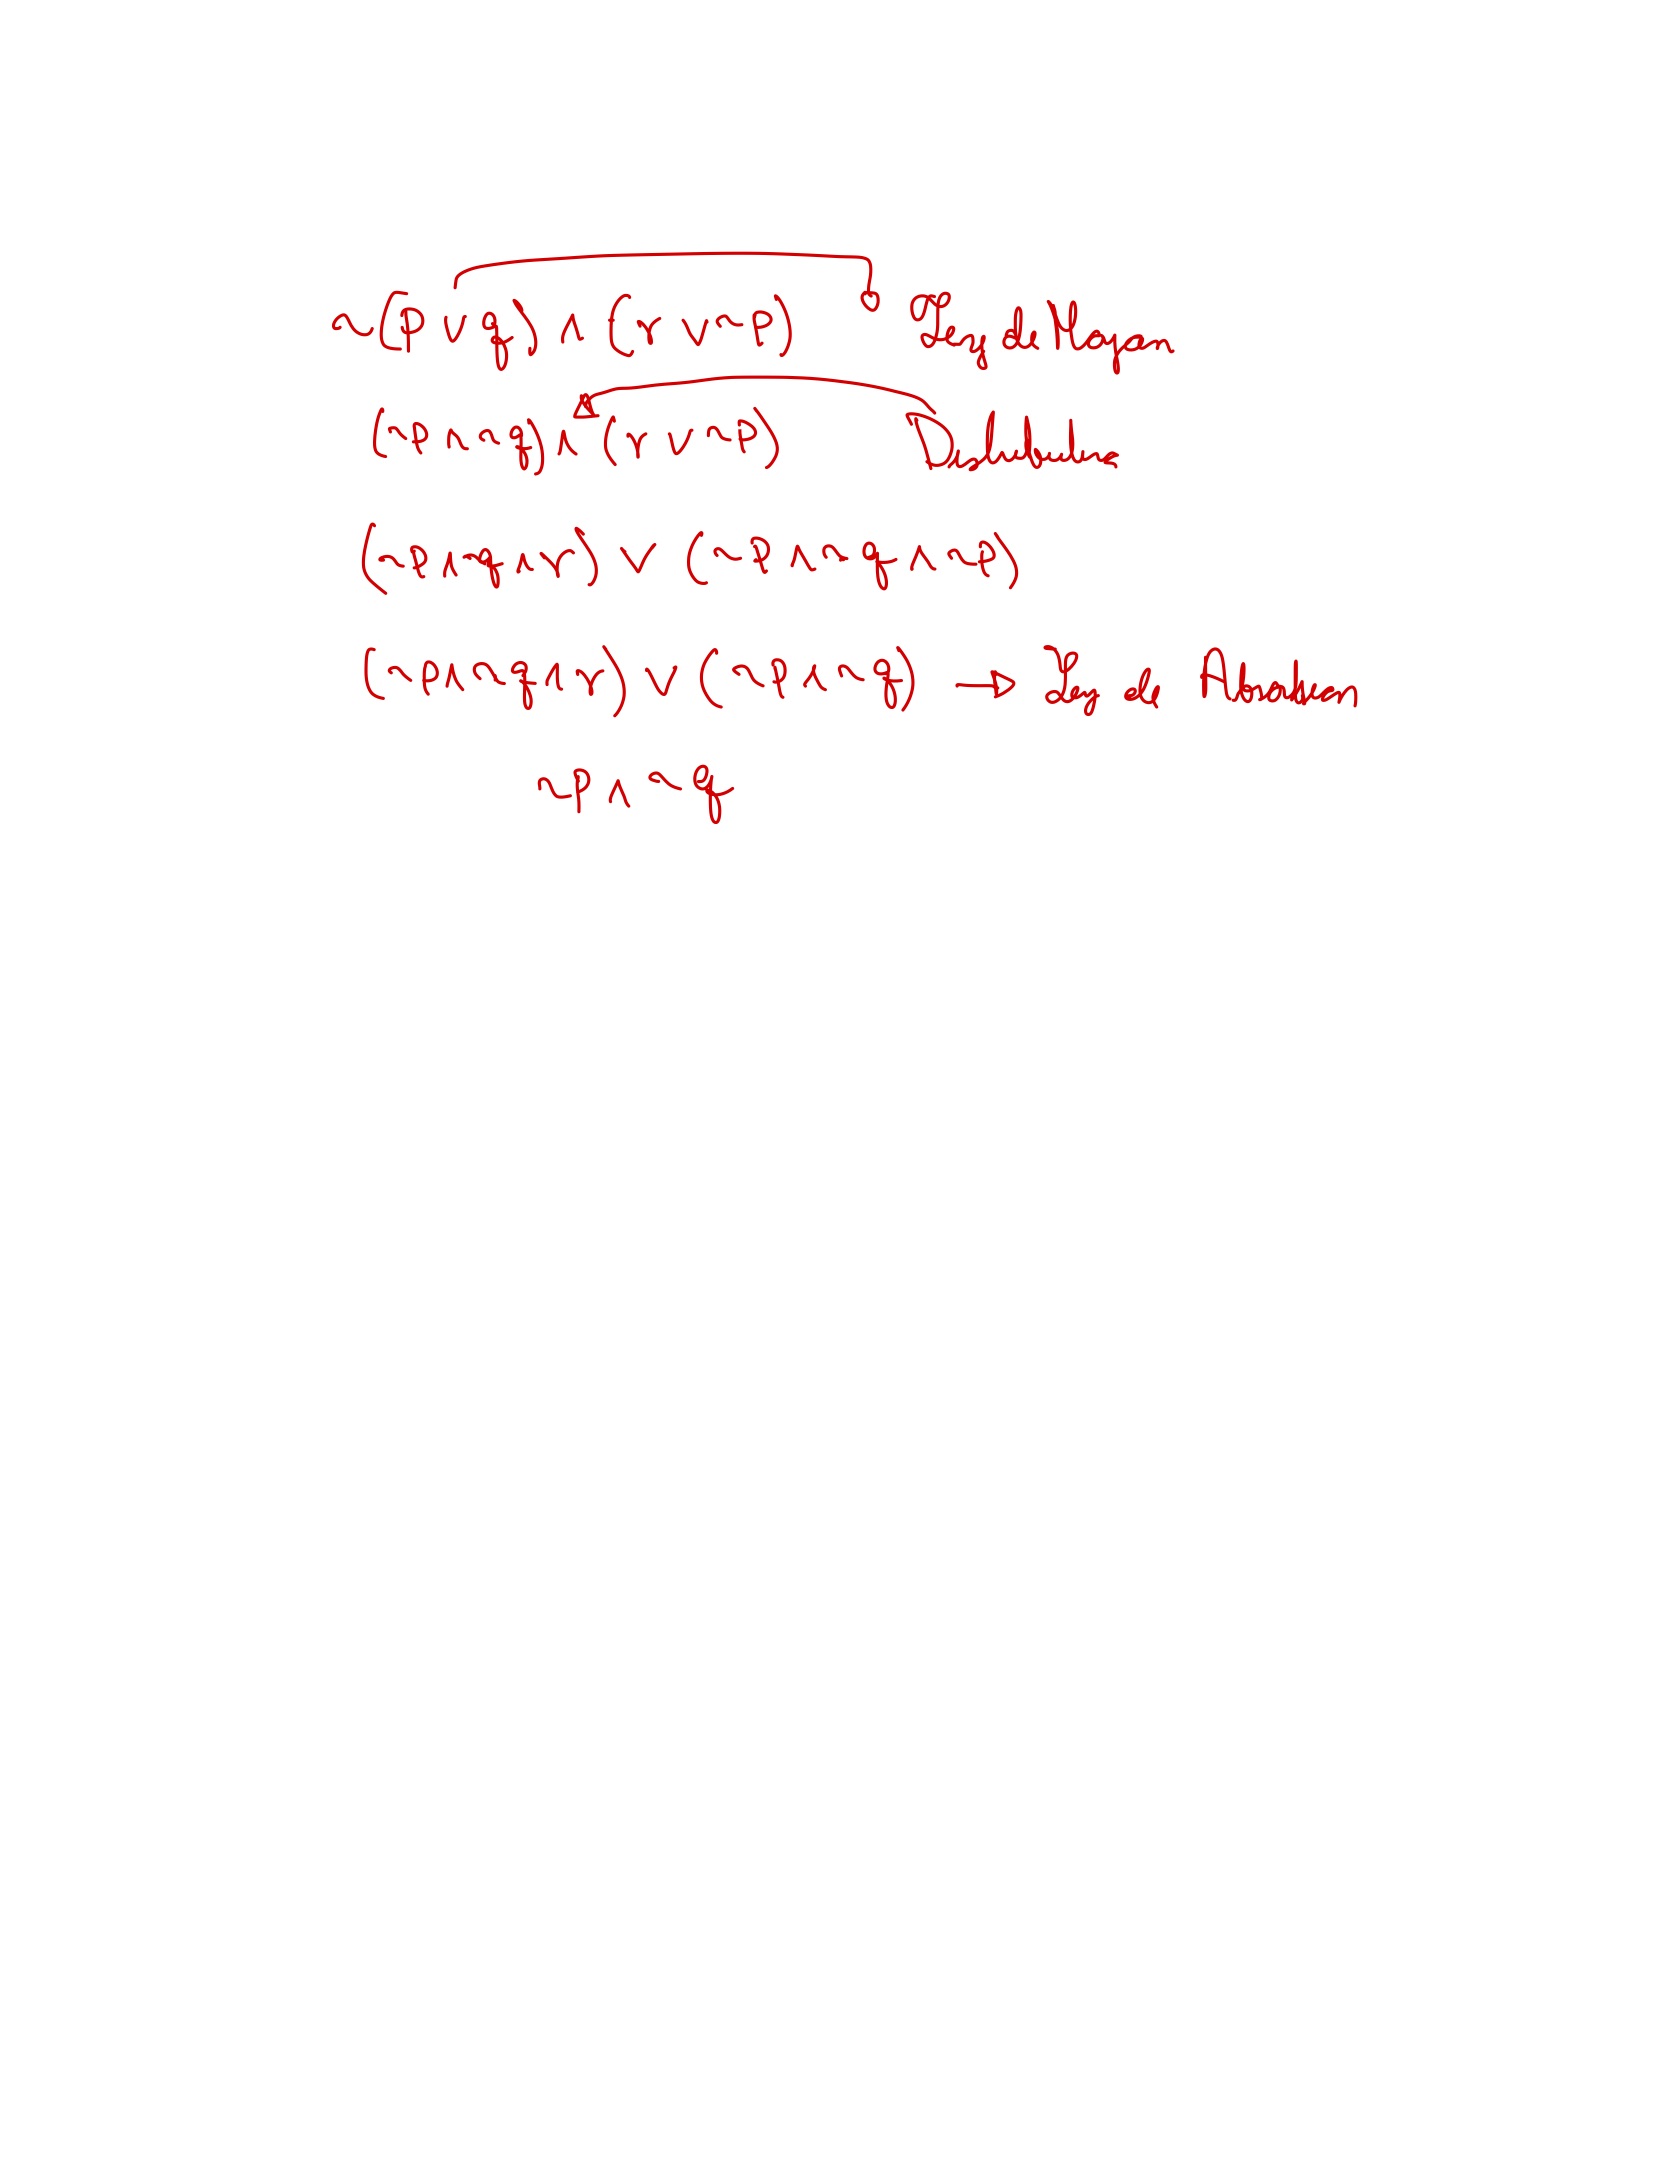 ~(p ∨ q) ∧ (r ∨ ~p) Ley de Morgan
(~p ∧ ~q) ∧ (r ∨ ~p) Distributiva
(~p ∧ ~q ∧ r) ∨ (~p ∧ ~q ∧ ~p)
(~p ∧ ~q ∧ r) ∨ (~p ∧ ~q) → Ley de Absorcion
~p ∧ ~q